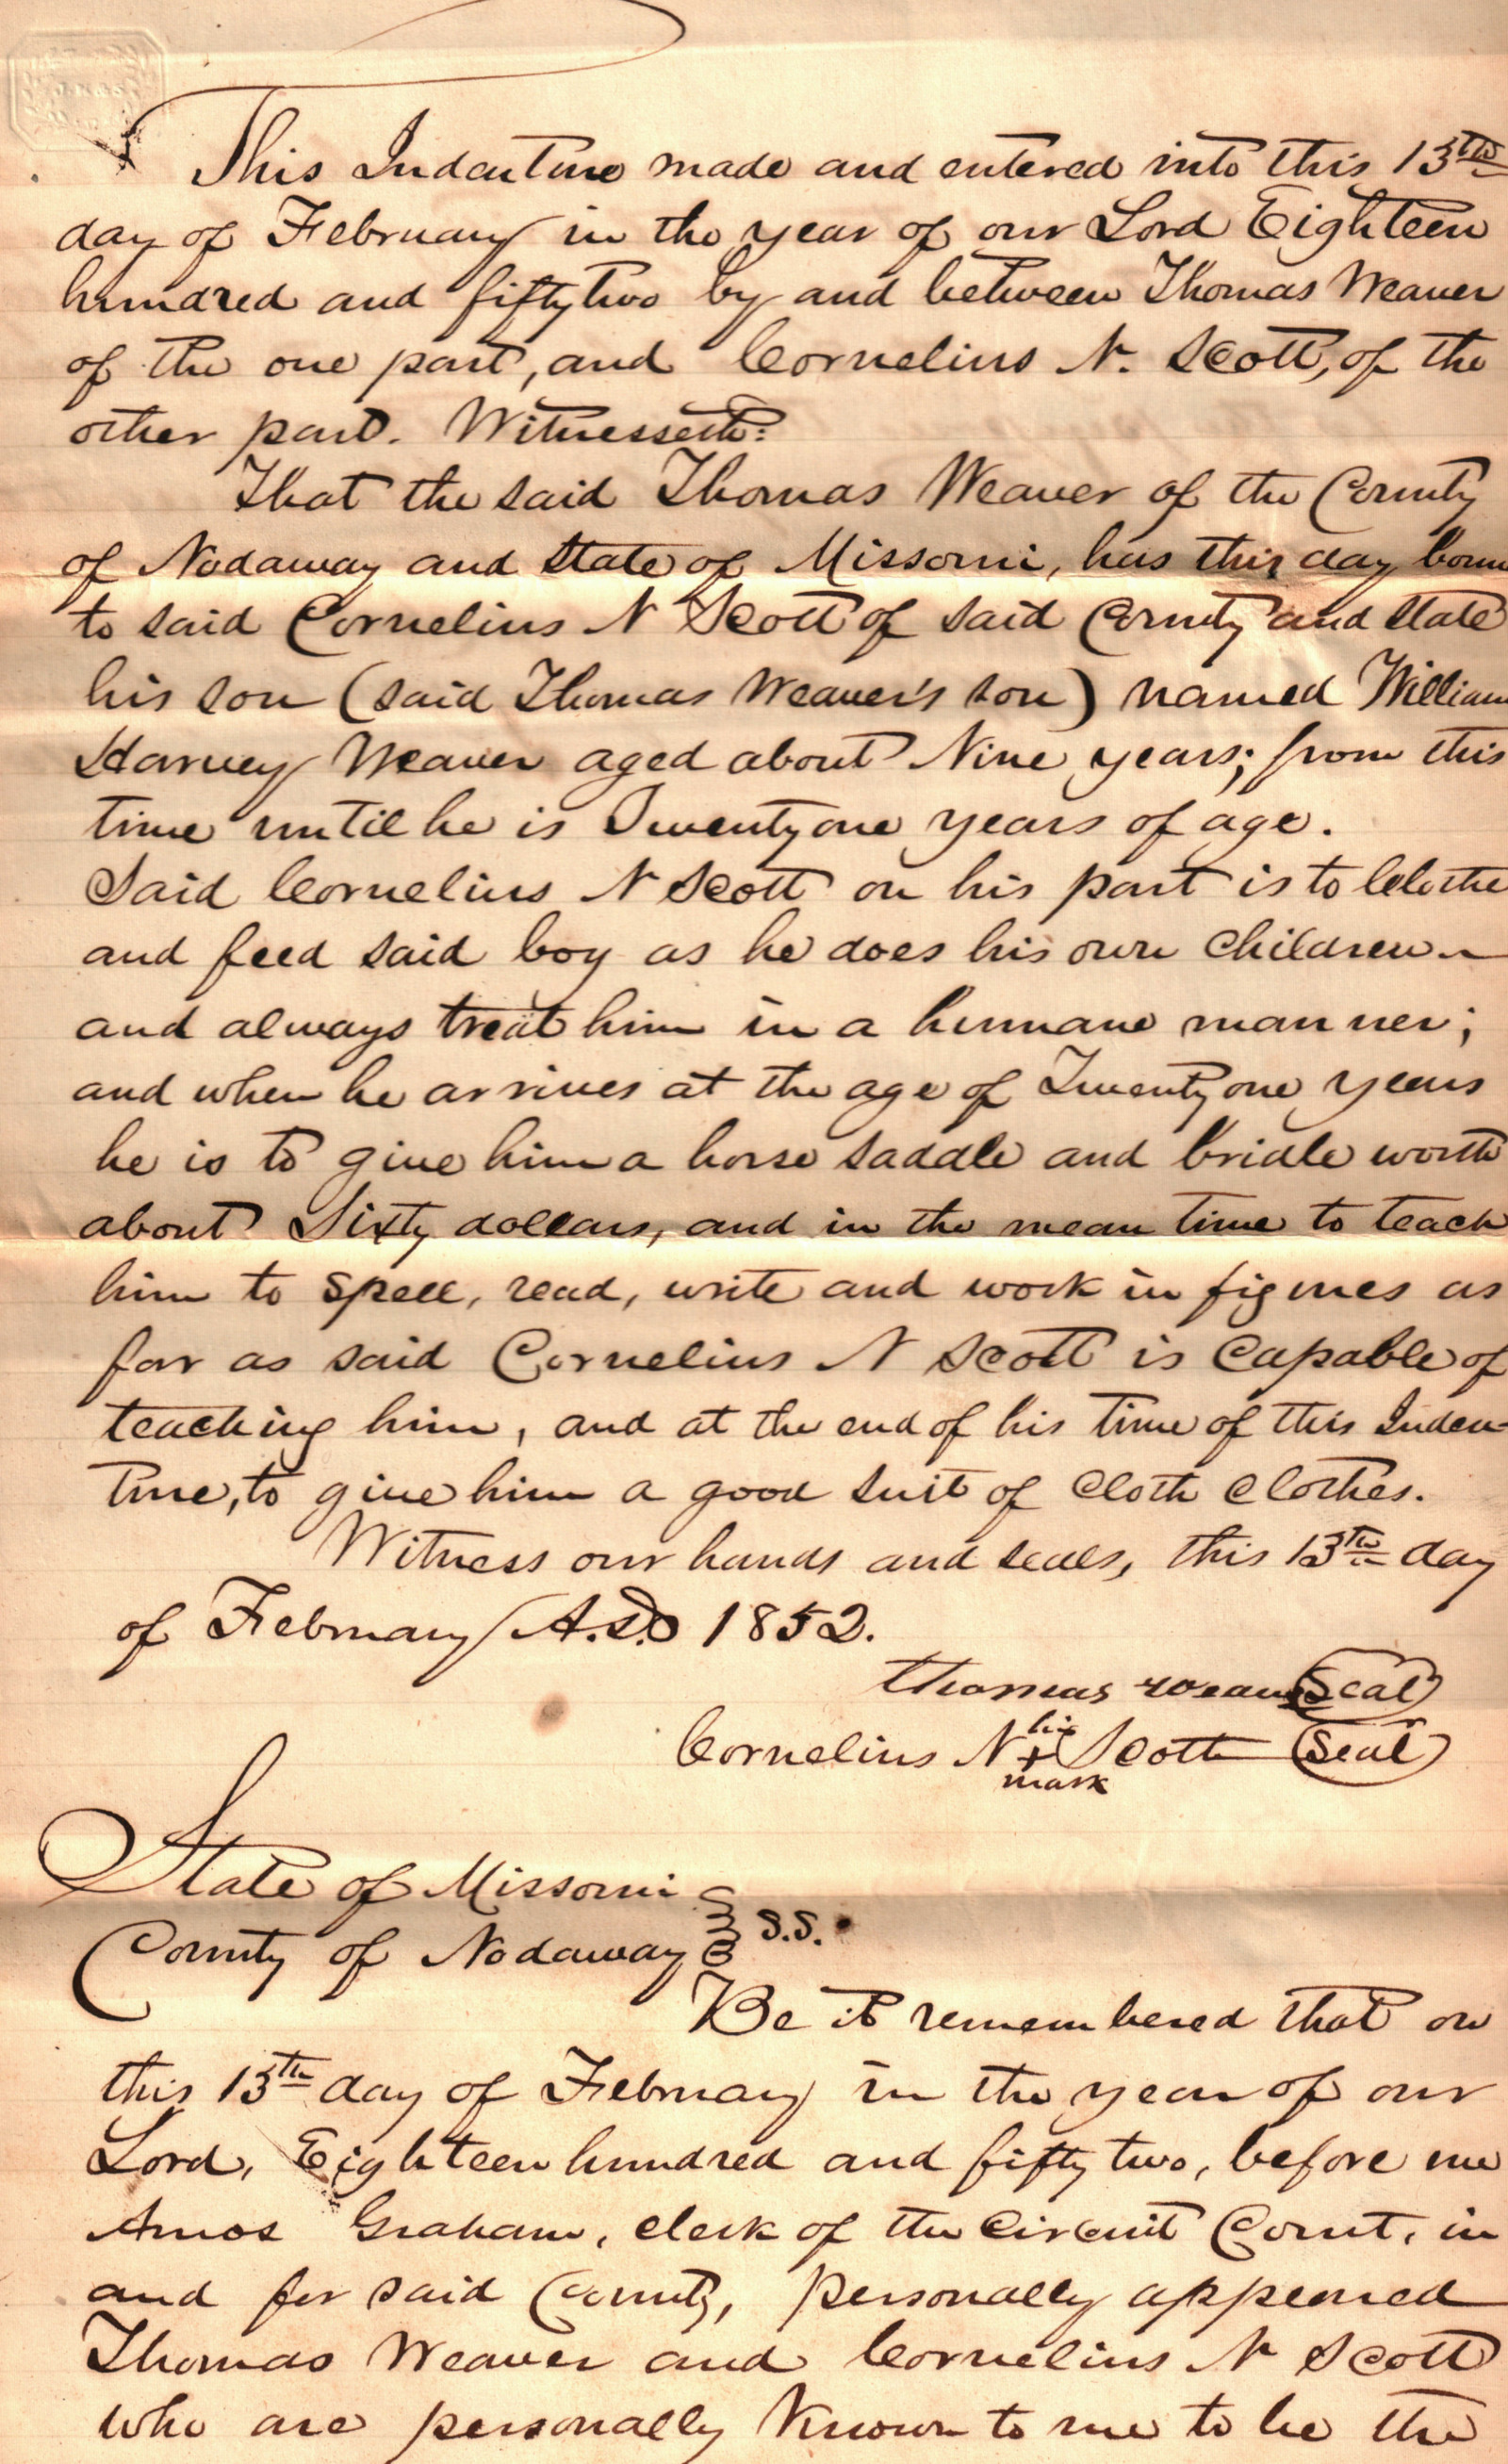 This Indenture made and entered into this 13th
day of February in the year of our Lord Eighteen
hundred and fifty two by and between Thomas Weaver
of the one part, and Cornelius N. Scott, of the
other part. Witnesseth:
That the said Thomas Weaver of the County
of Nodaway and State of Missouri, has this day boun
to said Cornelius N Scott of said County and State
his son (said Thomas Weaver's son) named William
Harvey Weaver aged about Nine years; from this
time until he is Twenty one years of age.
Said Cornelius N Scott on his part is to Clothe
and feed said boy as he does his own children
and always treat him in a humane manner;
and when he arrives at the age of Twenty one years
he is to give him a horse saddle and bridle worth
about Sixty dollars, and in the mean time to teach
him to spell, read, write and work in figures as
far as said Cornelius N Scott is capable of
teaching him, and at the end of his time of this Inden-
ture, to give him a good suit of cloth clothes.
Witness our hands and seals, this 13th day
of February A.D. 1852.
Thomas Weaver Seal
Cornelius N his + mark Scott Seal
State of Missouri
County of Nodaway } S.S.
Be it remembered that on
this 13th day of February in the year of our
Lord, Eighteen hundred and fifty two, before me
Amos Graham, clerk of the Circuit Court, in
and for said County, personally appeared
Thomas Weaver and Cornelius N Scott
who are personally known to me to be the